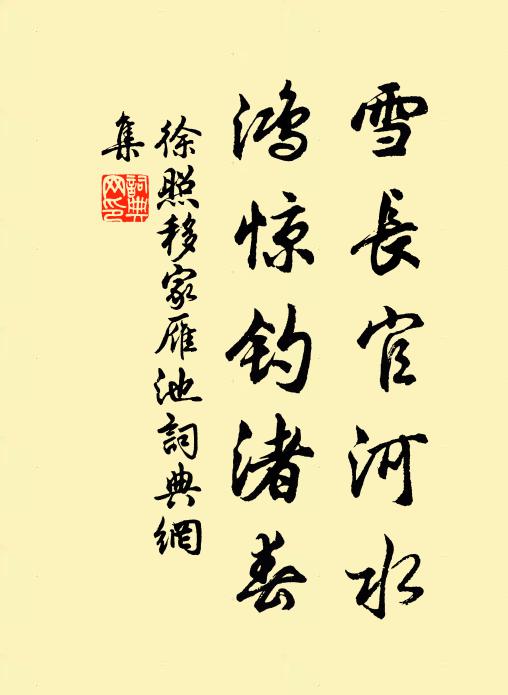 雪長官河水
鴻惊钓渚春
徐照移家雁池詞典網
集
詞典網印